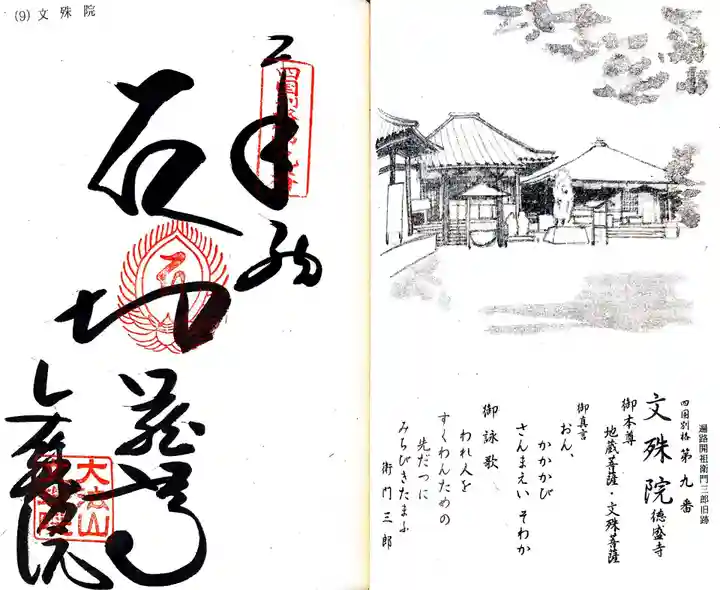 (9) 文殊院
奉納
地蔵尊
文殊院
大法山
遍路開祖衛門三郎旧跡
四国別格 第九番
文殊院 徳盛寺
御本尊
地蔵菩薩・文殊菩薩
御真言
おん、
かかかび
さんまえい そわか
御詠歌
われ人を
すくわんための
先だつに
みちびきたまふ
衛門三郎